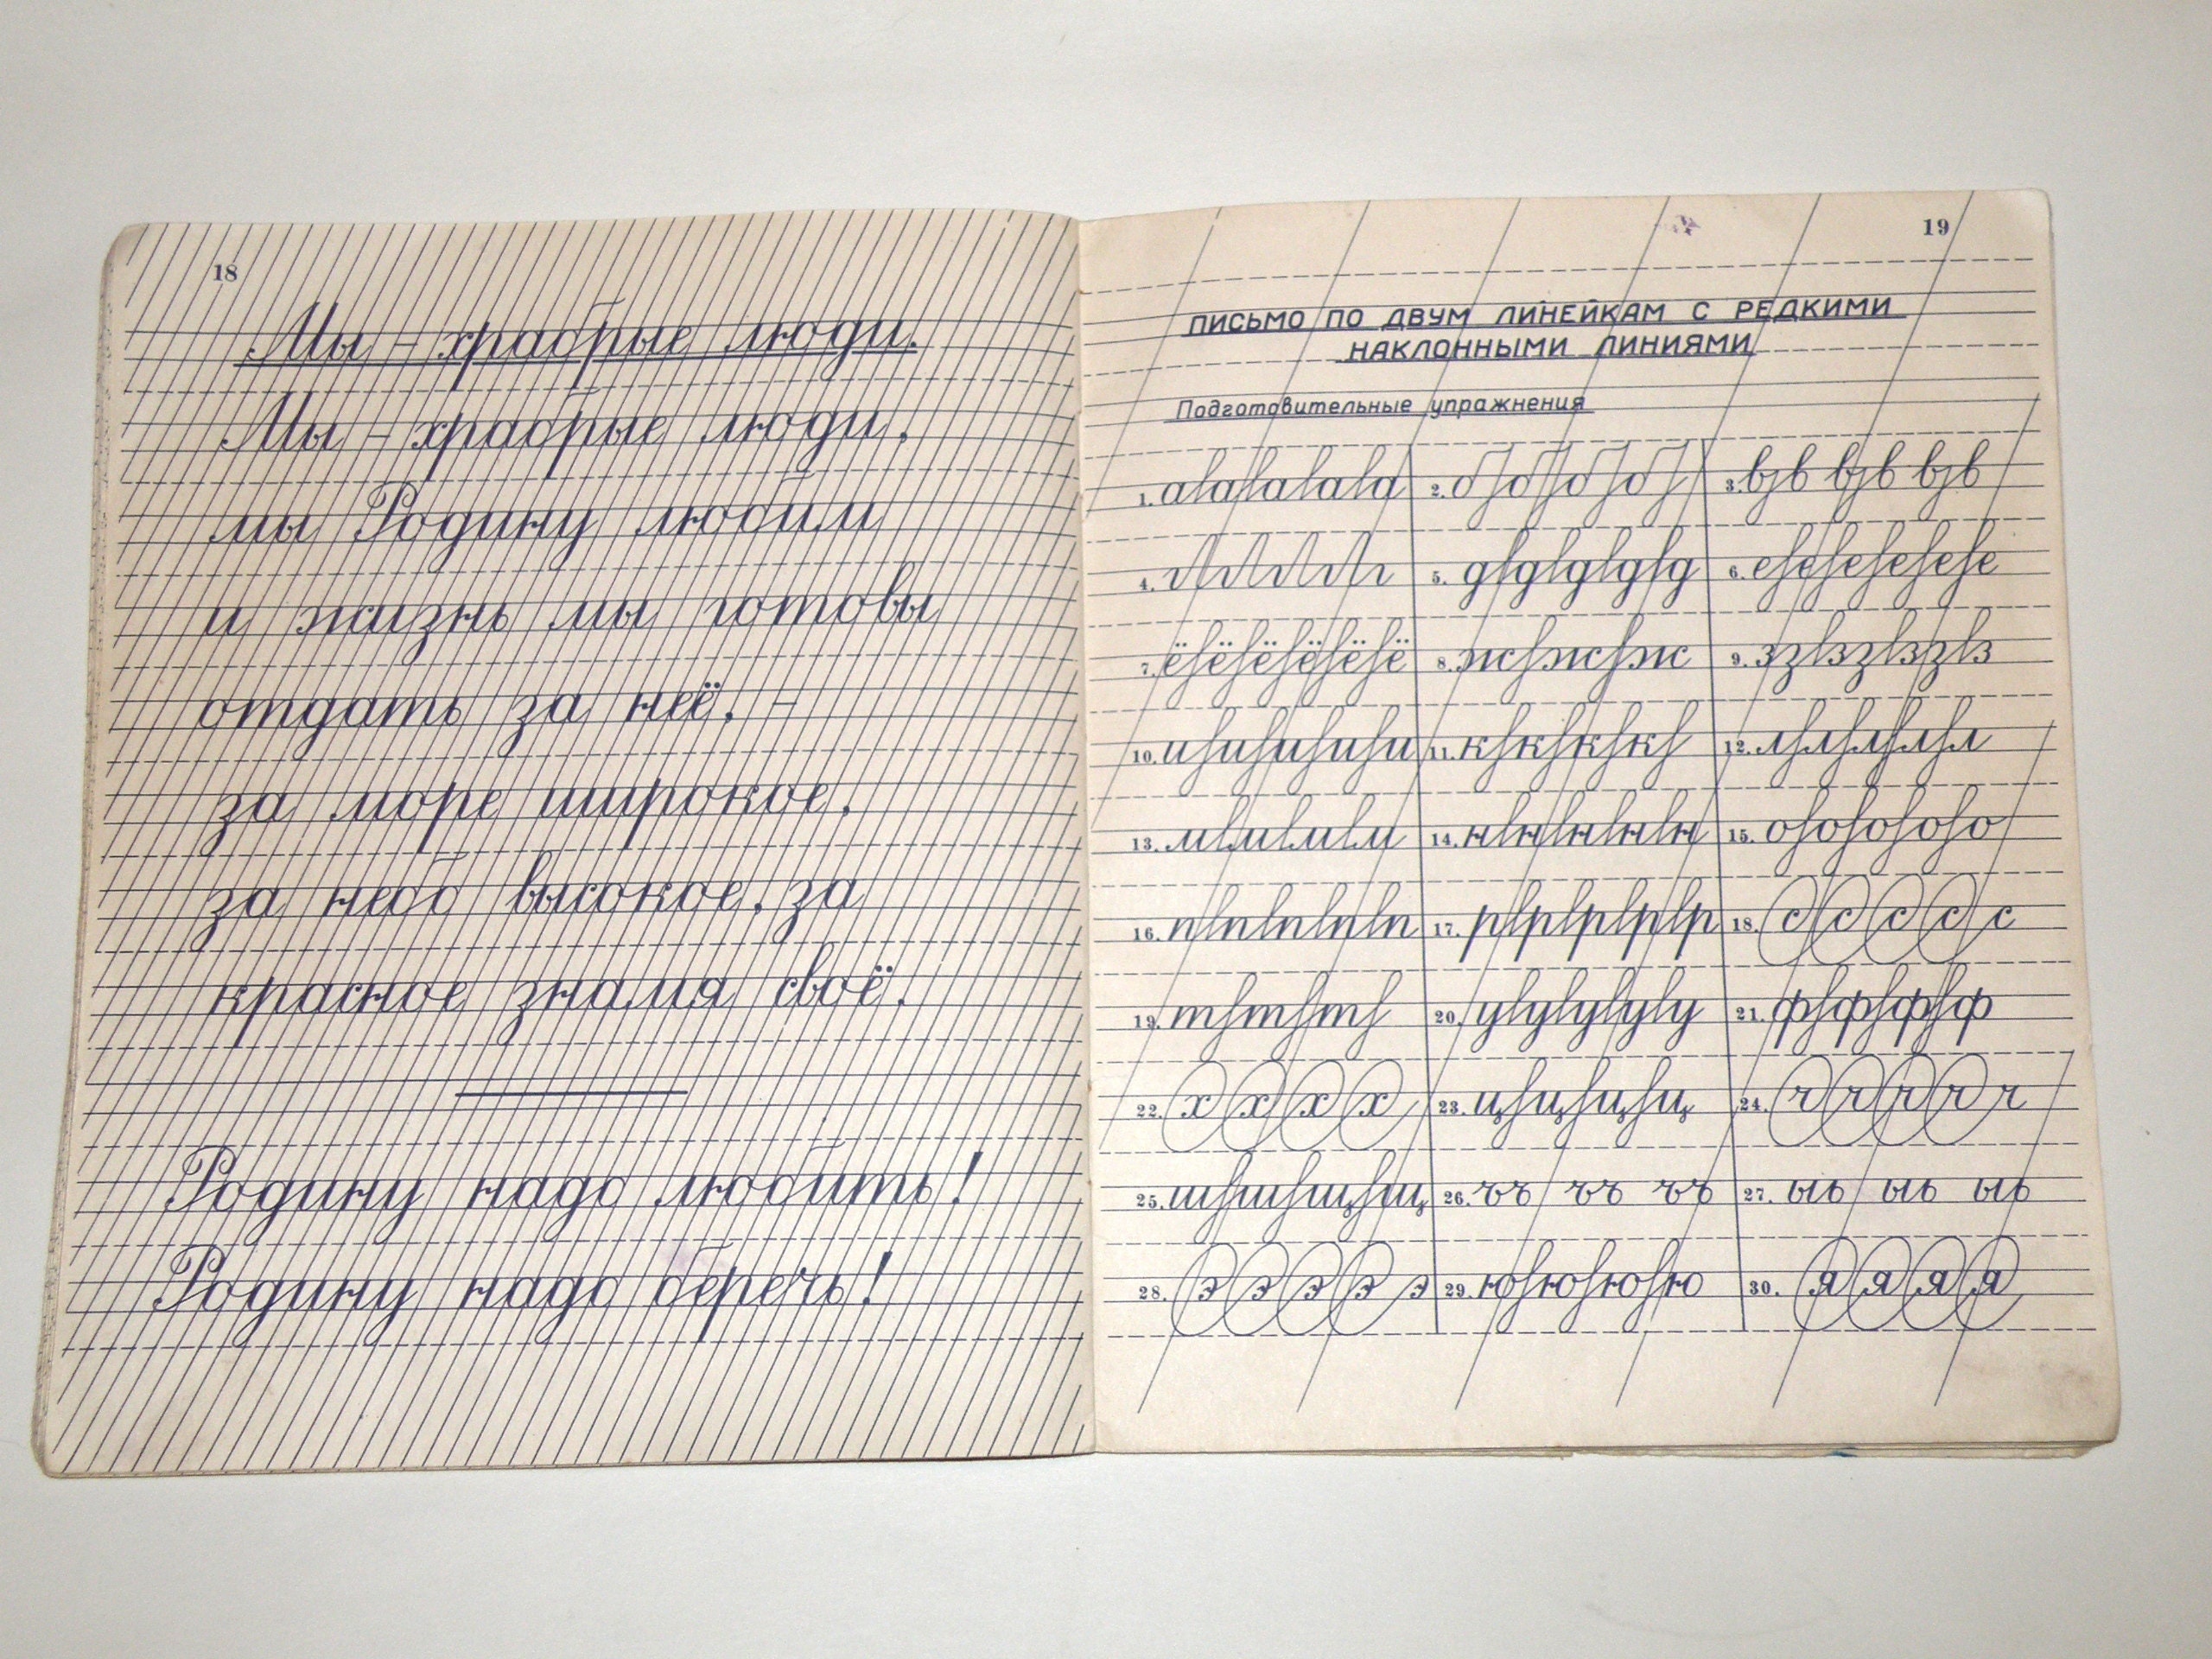 18
Мы – храбрые люди.
Мы – храбрые люди,
мы Родину любим
и жизнь мы готовы
отдать за неё, –
за море широкое,
за небо высокое, за
красное знамя своё.
Родину надо любить!
Родину надо беречь!
19
ПИСЬМО ПО ДВУМ ЛИНЕЙКАМ С РЕДКИМИ
НАКЛОННЫМИ ЛИНИЯМИ
Подготовительные упражнения
1. а а а а а 2. б б б б 3. в в в в в в
4. г г г г г 5. д д д д д 6. е е е е е е
7. ё ё ё ё ё ё 8. ж ж ж 9. з з з з з з
10. и и и и и 11. к к к к 12. л л л л л
13. м м м м 14. н н н н н 15. о о о о о
16. п п п п п 17. р р р р р 18. с с с с с
19. т т т 20. у у у у у 21. ф ф ф ф
22. х х х х 23. ц ц ц ц 24. ч ч ч ч ч
25. ш ш щ щ 26. ъъ ъъ ъъ 27. ыь ыь ыь
28. э э э э э 29. ю ю ю ю 30. я я я я